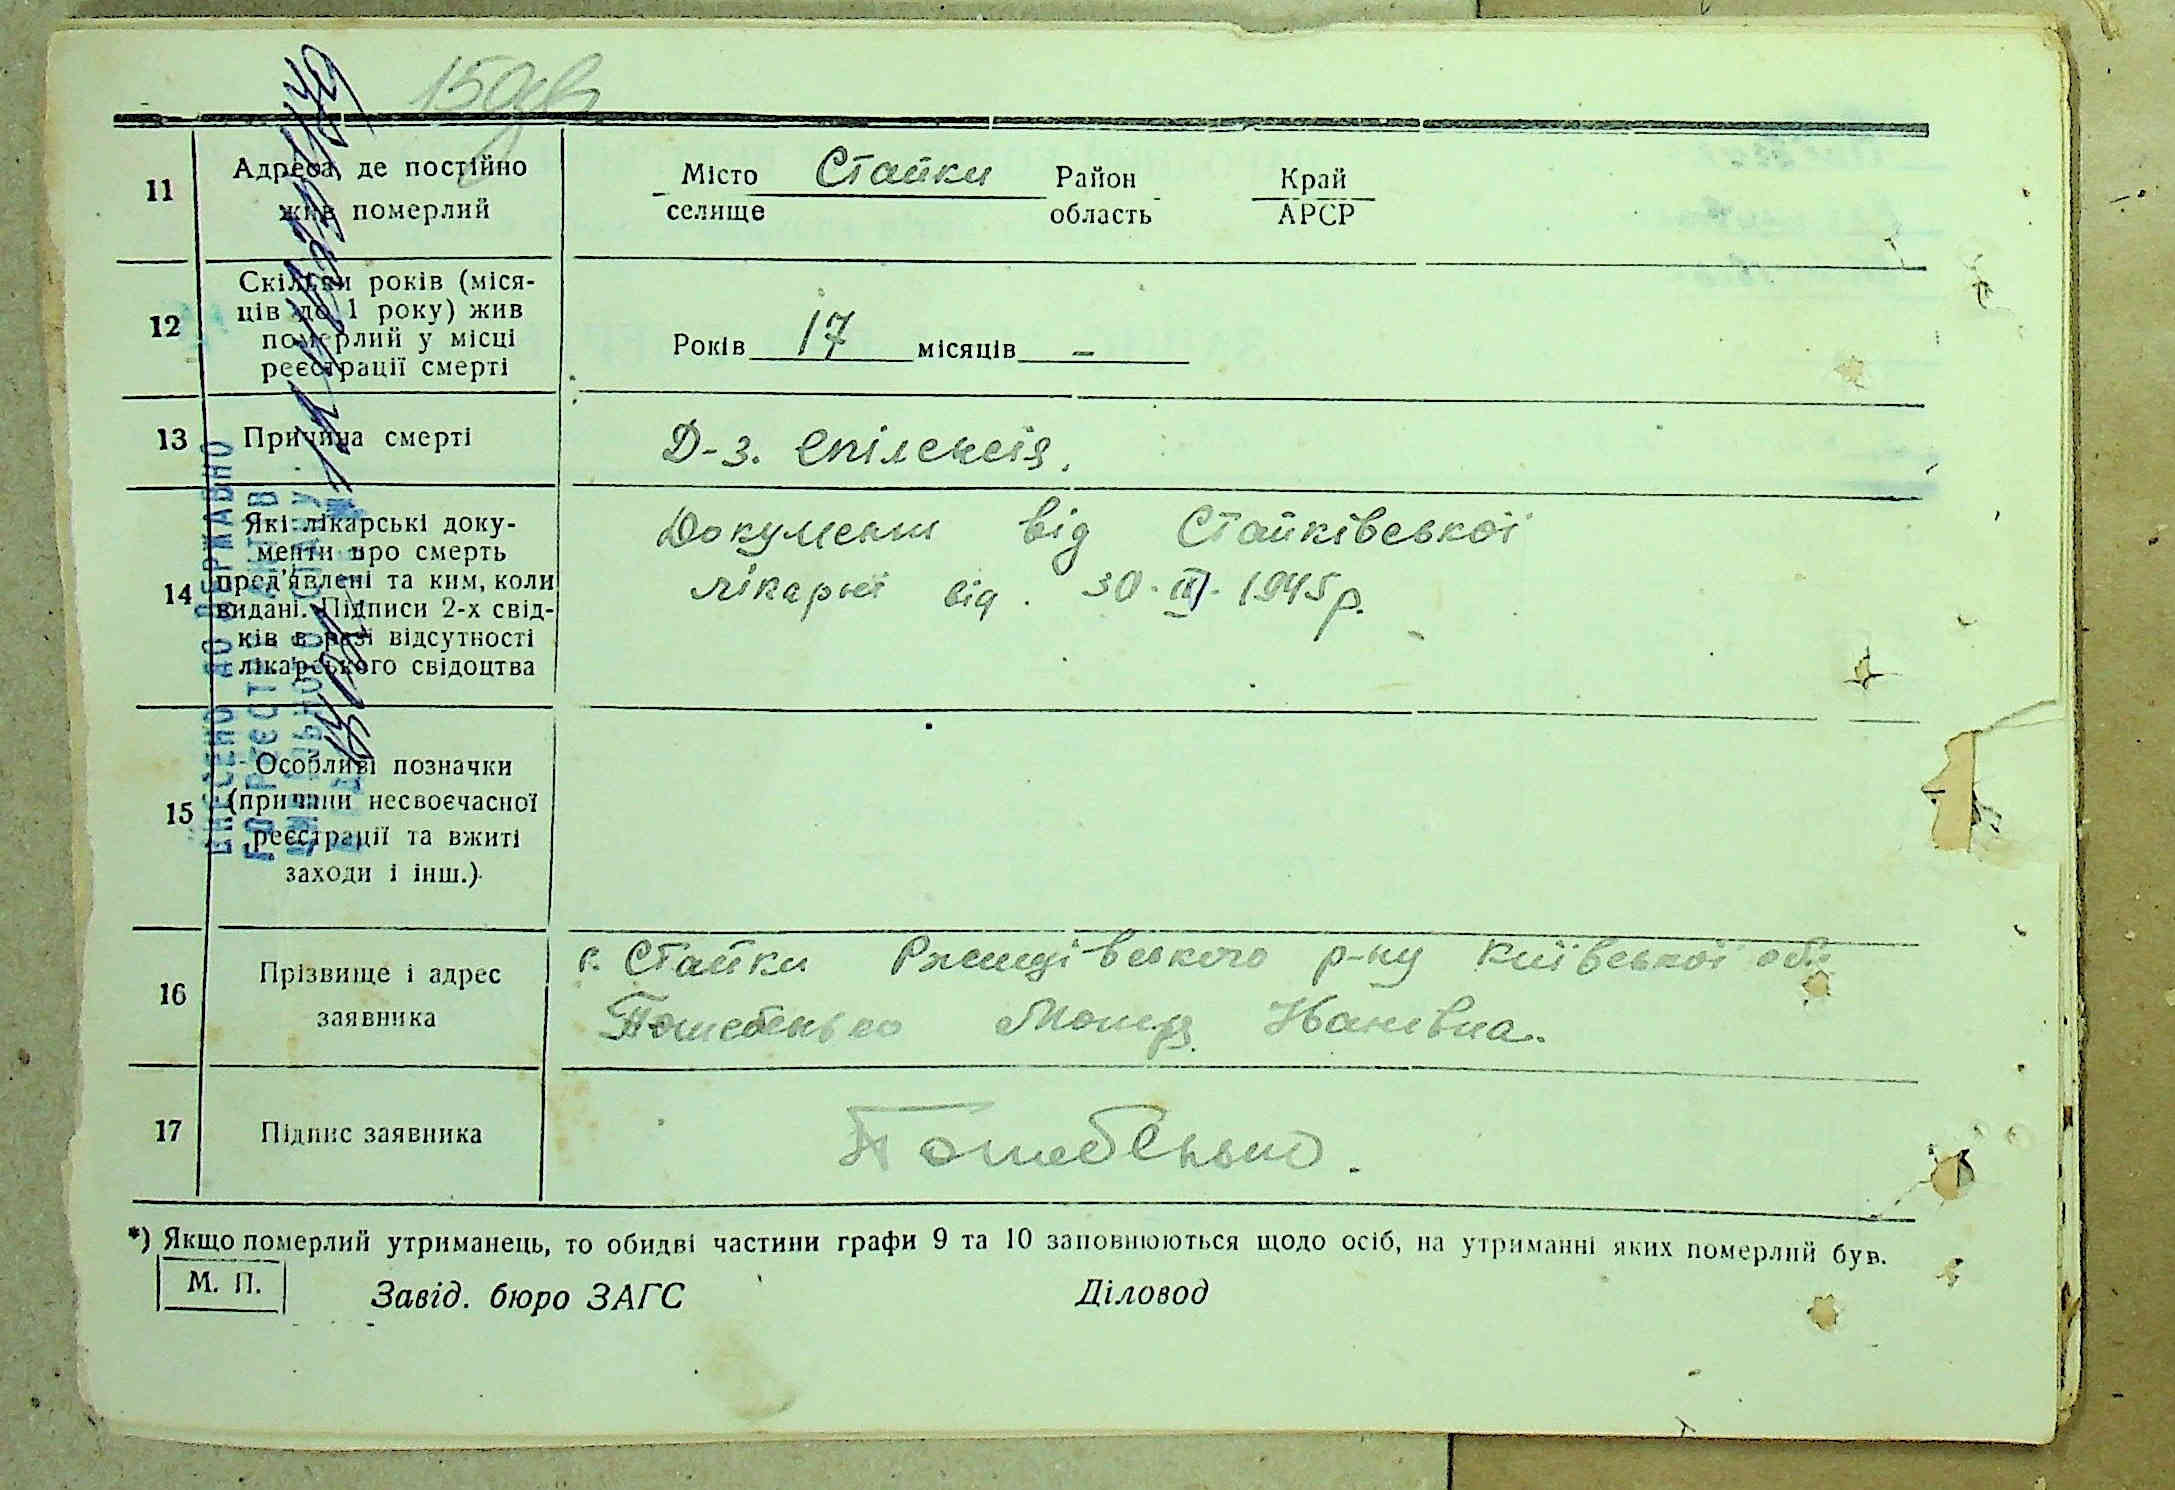 150зв
11
Адреса, де постійно
жив померлий
Місто Стайки Район Край
селище область АРСР
12
Скільки років (міся-
ців до 1 року) жив
померлий у місці
реєстрації смерті
Років 17 місяців –
13
Причина смерті
Д-з. епілепсія.
14
Які лікарські доку-
менти про смерть
пред'явлені та ким, коли
видані. Підписи 2-х свід-
ків в разі відсутності
лікарського свідоцтва
Документ від Стайківської
лікарні від. 30. 1945 р.
15
Особливі позначки
(причини несвоєчасної
реєстрації та вжиті
заходи і інш.)
16
Прізвище і адрес
заявника
с. Стайки Ржищівського р-ну Київської обл.
17
Підпис заявника
*) Якщо померлий утриманець, то обидві частини графи 9 та 10 заповнюються щодо осіб, на утриманні яких померлий був.
М. П.
Завід. бюро ЗАГС Діловод
ВНЕСЕНО ДО ДЕРЖАВНО
ГО РЕЄСТРУ АКТІВ
ЦИВІЛЬНОГО СТАНУ